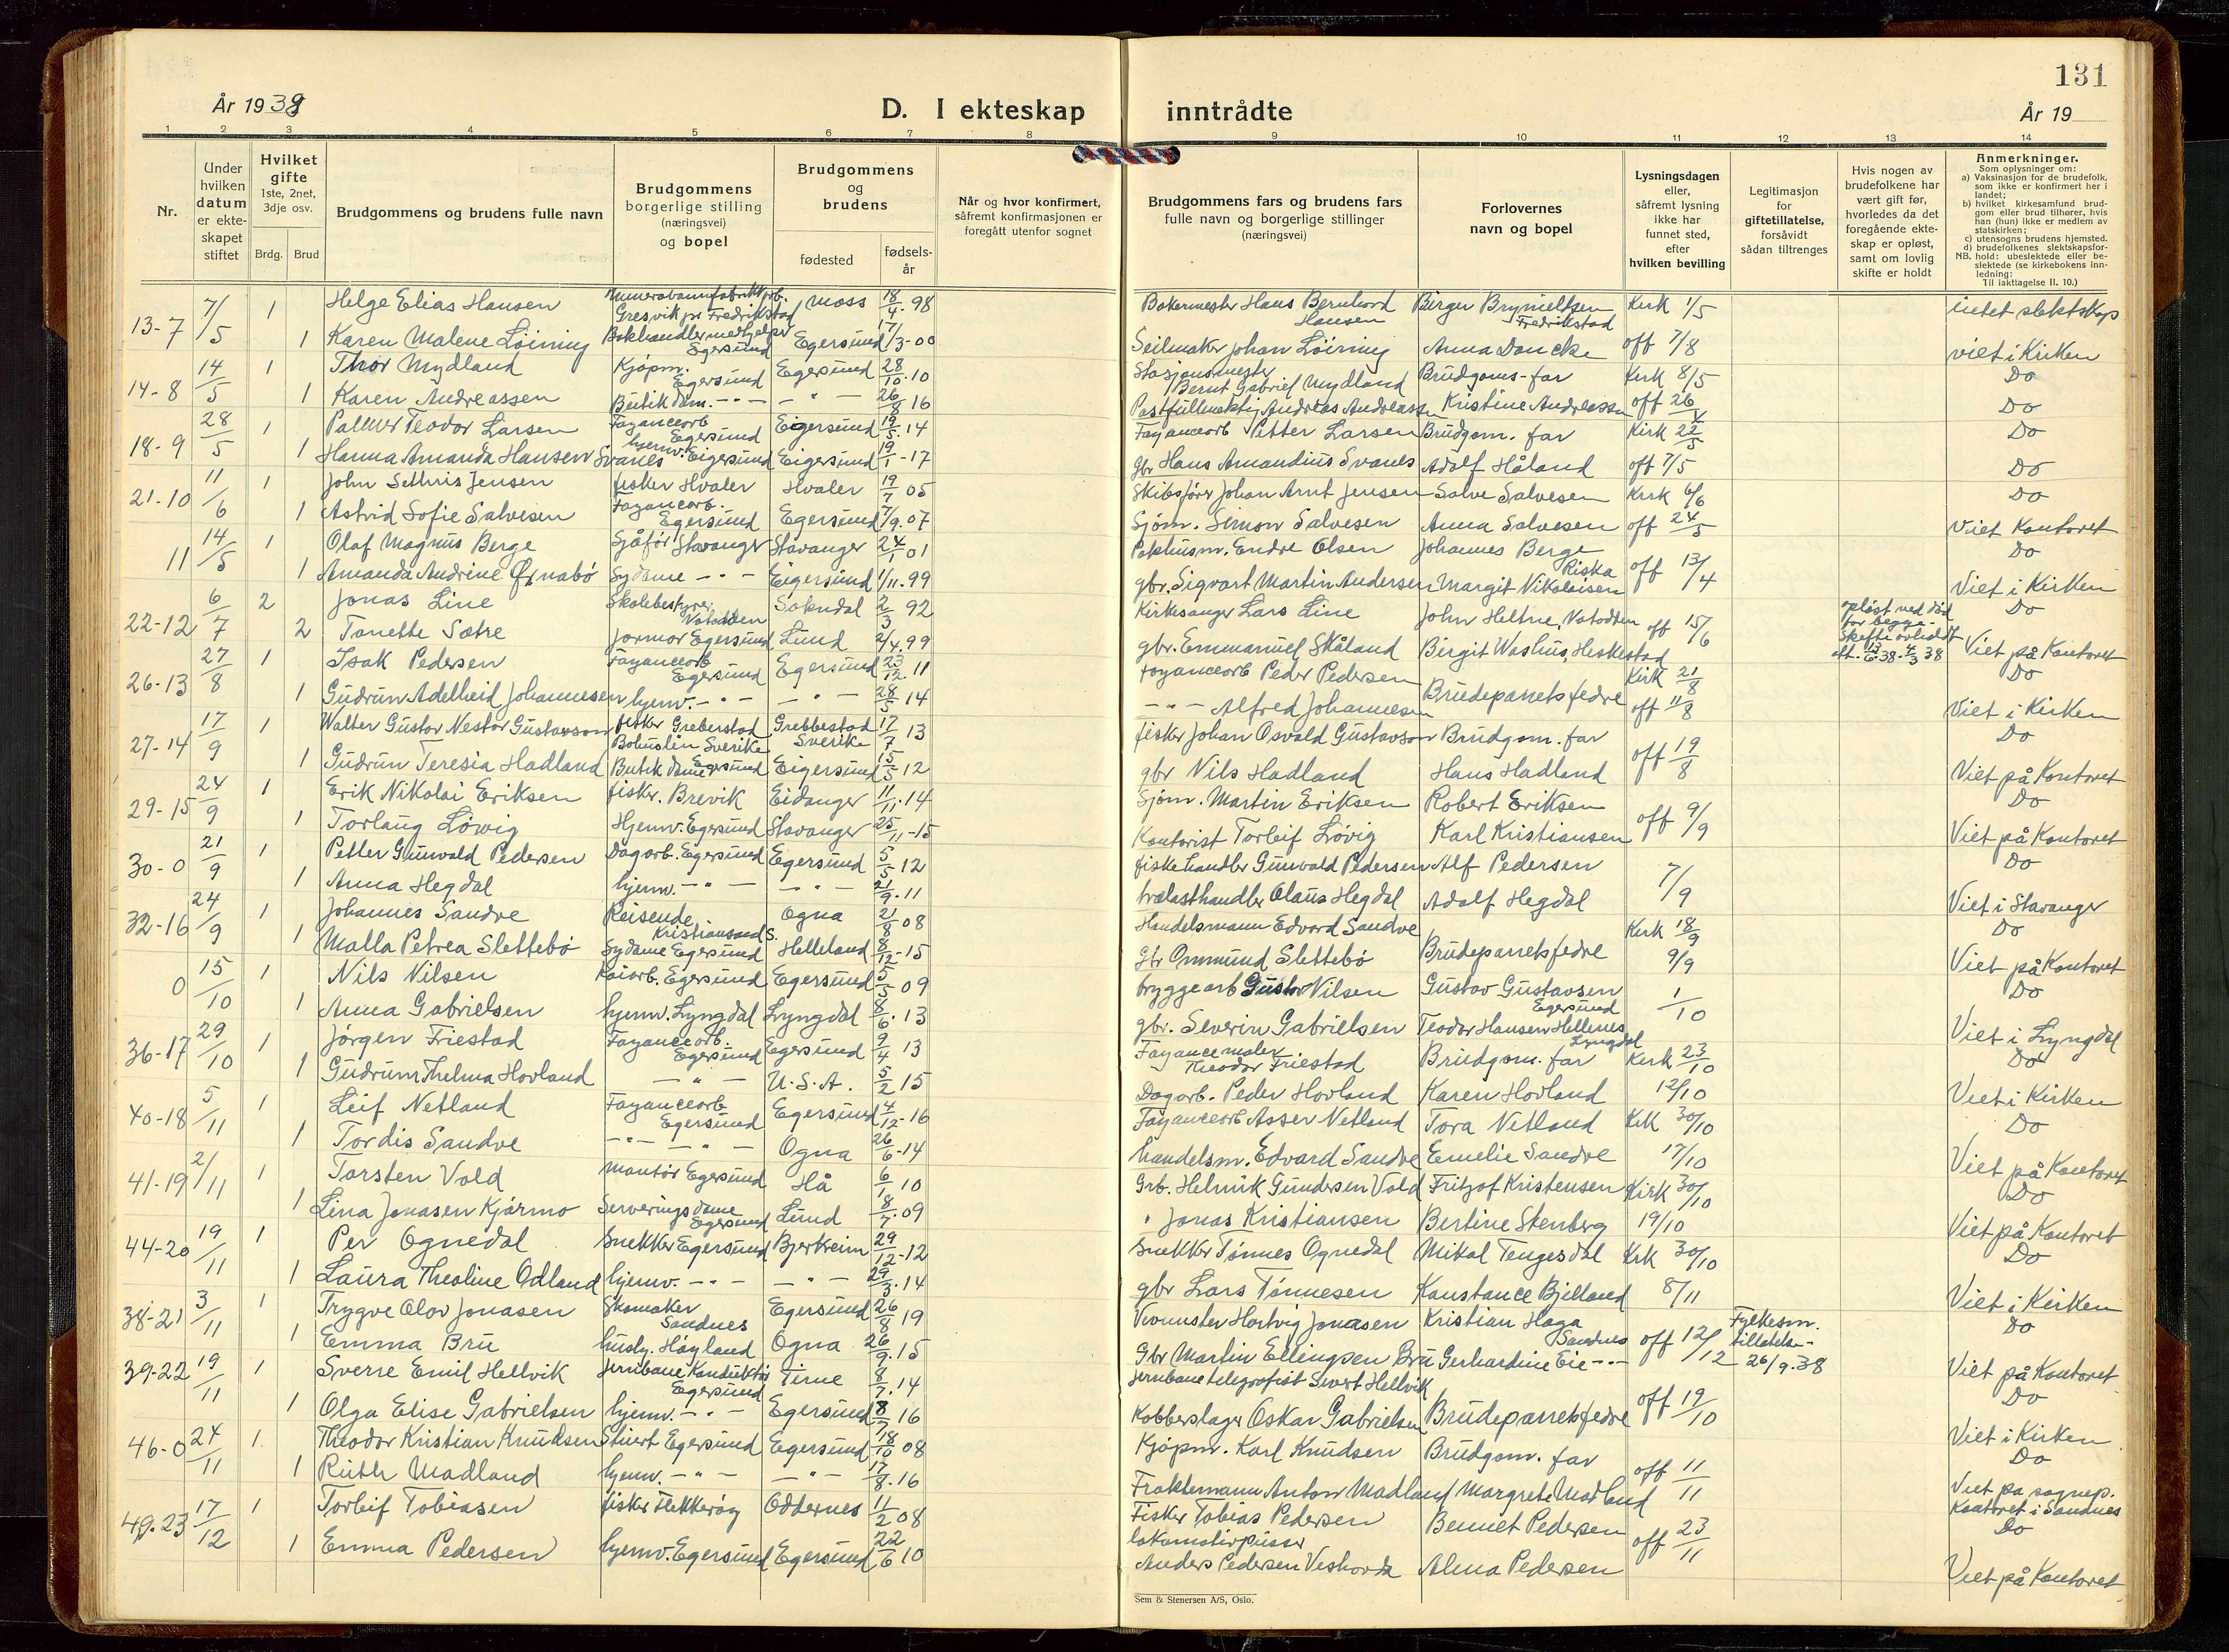 131
År 1938
D. I ekteskap
inntrådte
År 19
1 2 3 4 5 6 7 8 9 10 11 12 13 14
Nr.
Under hvilken datum er ekteskapet stiftet
Hvilket gifte
1ste, 2net, 3dje osv.
Brdg. Brud
Brudgommens og brudens fulle navn
Brudgommens borgerlige stilling (næringsvei) og bopel
Brudgommens og brudens
fødested
fødsels-år
Når og hvor konfirmert, såfremt konfirmasjonen er foregått utenfor sognet
Brudgommens fars og brudens fars fulle navn og borgerlige stillinger (næringsvei)
Forlovernes navn og bopel
Lysningsdagen eller, såfremt lysning ikke har funnet sted, efter hvilken bevilling
Legitimasjon for giftetillatelse, forsåvidt sådan tiltrenges
Hvis nogen av brudefolkene har vært gift før, hvorledes da det foregående ekteskap er opløst, samt om lovlig skifte er holdt
Anmerkninger.
Som oplysninger om:
a) Vaksinasjon for de brudefolk, som ikke er konfirmert her i landet;
b) hvilket kirkesamfund brudgom eller brud tilhører, hvis han (hun) ikke er medlem av statskirken;
c) utensogns brudens hjemsted.
d) brudefolkenes slektskapsforhold: ubeslektede eller beslektede (se kirkebokens innledning:
NB.
Til iakttagelse II. 10.)
13-7 7/5 1 Helge Elias Hansen Gresvik pr Fredrikstad Moss 18/4.98 Bakermester Hans Bernhard Hansen Birger Brynieltsen Fredrikstad Kirk 1/5 intet slektskap
1 Karen Malene Löining Bokhandlermedhjelper Egersund Egersund 17/3-00 Seilmaker Johan Löining Anna Doncke off 7/8 viet i Kirken
14-8 14/5 1 Thor Mydland Kjøpm. Egersund Egersund 28/10.10 Stasjonsmester Bernt Gabriel Mydland Brudgoms-far Kirk 8/5 Do
1 Karen Andreassen Butikdam. -"- -"- 26/8 16 Postfullmektig Andreas Andreassen Kristine Andreassen off 26/4 Do
18-9 28/5 1 Palmer Teodor Larsen Fayancearb Egersund Eigersund 19/5.14 Fayancearb Petter Larsen Brudgom. far Kirk 22/5 Do
1 Hanna Amanda Hansen Svanes hjemv. Eigersund Eigersund 19/1-17 gbr Hans Amandius Svanes Adolf Håland off 7/5 Do
21-10 11/6 1 John Sethris Jensen fisker Hvaler Hvaler 19/7 05 Skibsfører Johan Arnt Jensen Salve Salvesen Kirk 6/6 Do
1 Astrid Sofie Salvesen Fayancearb. Egersund Egersund 7/9.07 Sjøm. Simon Salvesen Anna Salvesen off 24/5 Viet Kontoret
11 14/5 1 Olaf Magnus Berge Sjåfør Stavanger Stavanger 24/1 01 Pakhusm. Endre Olsen Johannes Berge Riska off 13/4 Do
1 Amanda Andrine Ørnabö Sydame -"- Eigersund 1/11.99 gbr. Sigvart Martin Andersen Margit Nikolaisen Viet i Kirken
22-12 6/7 2 Jonas Line Skolebestyrer Notodden Sokndal 2/3 92 Kirkesanger Lars Line John Heltne, Notodden off 15/6 opløst ved død for begge - Skifte avholdt Do
2 Tonette Sætre Jormor Egersund Lund 2/4.99 gbr. Emmanuel Skåland Birgit Washus, Heskestad att. 13/6.38 - 4/3 38 Viet på Kontoret
26-13 27/8 1 Isak Pedersen Fayancearb Egersund Egersund 23/12 11 Fayancearb Peder Pedersen Brudeparrets fedre Kirk 21/8 Do
1 Gudrun Adelheid Johannesen hjemv. -"- -"- 28/5 14 -"- Alfred Johannesen off 11/8 Viet i Kirken
27-14 17/9 1 Walter Gustov Nestor Gustavson fisker Greberstad Bohuslen Sverike Grebbestad Sverike 17/7 13 fisker Johan Osvald Gustavson Brudgom. far off 19/8 Do
1 Gudrun Teresia Hadland Butikdame Egersund Eigersund 15/5 12 gbr Nils Hadland Hans Hadland Viet på Kontoret
29-15 24/9 1 Erik Nikolai Eriksen fisker. Brevik Eidanger 11/11.14 Sjøm. Martin Eriksen Robert Eriksen off 9/9 Do
1 Torlaug Lövig Hjemv. Egersund Stavanger 25/11-15 Kontorist Torleif Lövig Karl Kristiansen Viet på Kontoret
30-0 21/9 1 Petter Gunvald Pedersen Dagarb. Egersund Egersund 5/5 12 fiskehandler Gunvald Pedersen Alf Pedersen 7/9 Do
1 Anna Hegdal hjemv. -"- -"- 21/9.11 trælasthandler Olaus Hegdal Adolf Hegdal Viet i Stavanger
32-16 24/9 1 Johannes Sandve Reisende Kristiansand S. Ogna 21/8 08 Handelsmann Edvard Sandve Brudeparrets fedre Kirk 18/9 Do
1 Malla Petrea Slettebö Sydame Egersund Helleland 8/12-15 gbr Ommund Slettebö 9/9 Viet på Kontoret
0 15/10 1 Nils Nilsen Kaiarb. Egersund Egersund 5/5 09 bryggearb Gustav Nilsen Gustav Gustavsen Egersund 1/10 Do
1 Anna Gabrielsen hjemv. Lyngdal Lyngdal 8/6.13 gbr. Severin Gabrielsen Teodor Hansen Hellenes Lyngdal Viet i Lyngdal
36-17 29/10 1 Jørgen Friestad Fayancearb. Egersund Egersund 9/4 13 Fayancemaler Theodor Friestad Brudgom. far Kirk 23/10 Do
1 Gudrun Thelma Hovland -"- U.S.A. 5/2 15 Dagarb. Peder Hovland Karen Hovland 12/10 Viet i Kirken
40-18 5/11 1 Leif Netland Fayancearb Egersund Egersund 4/12-16 Fayancearb Asser Netland Tora Netland Kirk 30/10 Do
1 Tordis Sandve -"- -"- Ogna 26/6-14 handelsm. Edvard Sandve Emelie Sandve 17/10 Viet på Kontoret
41-19 2/11 1 Torsten Vold Montør Egersund Hå 6/1 10 Grb. Helmik Gundersen Vold Fritjof Kristensen Kirk 30/10 Do
1 Lina Jonasen Kjørmo Serveringsdame Egersund Lund 8/7.09 " Jonas Kristiansen Bertine Stenberg 19/10 Viet på Kontoret
44-20 19/11 1 Per Ognedal Snekker Egersund Bjerkreim 29/12-12 Snekker Tønnes Ognedal Mikal Tengesdal Kirk 30/10 Do
1 Laura Theoline Odland hjemv. -"- -"- 29/3.14 gbr Lars Tønnesen Konstance Bjelland 8/11 Viet i Kirken
38-21 3/11 1 Trygve Olav Jonasen Skomaker Sandnes Egersund 26/8 19 Hartvig Jonasen Kristian Haga Sandnes off 12/12 Fylkesm. tillatelse- 26/9.38 Do
1 Emma Bru husly. Høyland Ogna 26/9.15 Gbr Martin Ellingsen Bru Gerhardine Eie -"- Viet på Kontoret
39-22 19/11 1 Sverre Emil Hellvik Jernbane Konduktør Egersund Time 8/7.14 Jernbanetelegrafist Sivert Hellvik Brudeparrets fedre off 19/10 Do
1 Olga Elise Gabrielsen hjemv. -"- Egersund 16 Kobberslager Oskar Gabrielsen Viet i Kirken
46-0 24/11 1 Theodor Kristian Knudsen Stuert Egersund Egersund 18/10 08 Kjøpm. Karl Knudsen Brudgom. far off 11/11 Do
1 Ruth Madland hjemv. -"- -"- 17/8.16 Fraktemann Anton Madland Margrete Madland Viet på sognep. Kontoret i Sandnes
49-23 17/12 1 Torleif Tobiasen fisker Flekkerøy Oddernes 11/2 08 Fisker Tobias Pedersen Bennet Pedersen off 23/11 Do
1 Emma Pedersen hjemv. Egersund Egersund 22/6 10 lokomotivpusser Anders Pedersen Veshovda Alma Pedersen Viet på Kontoret
Sem & Stenersen A/S, Oslo.